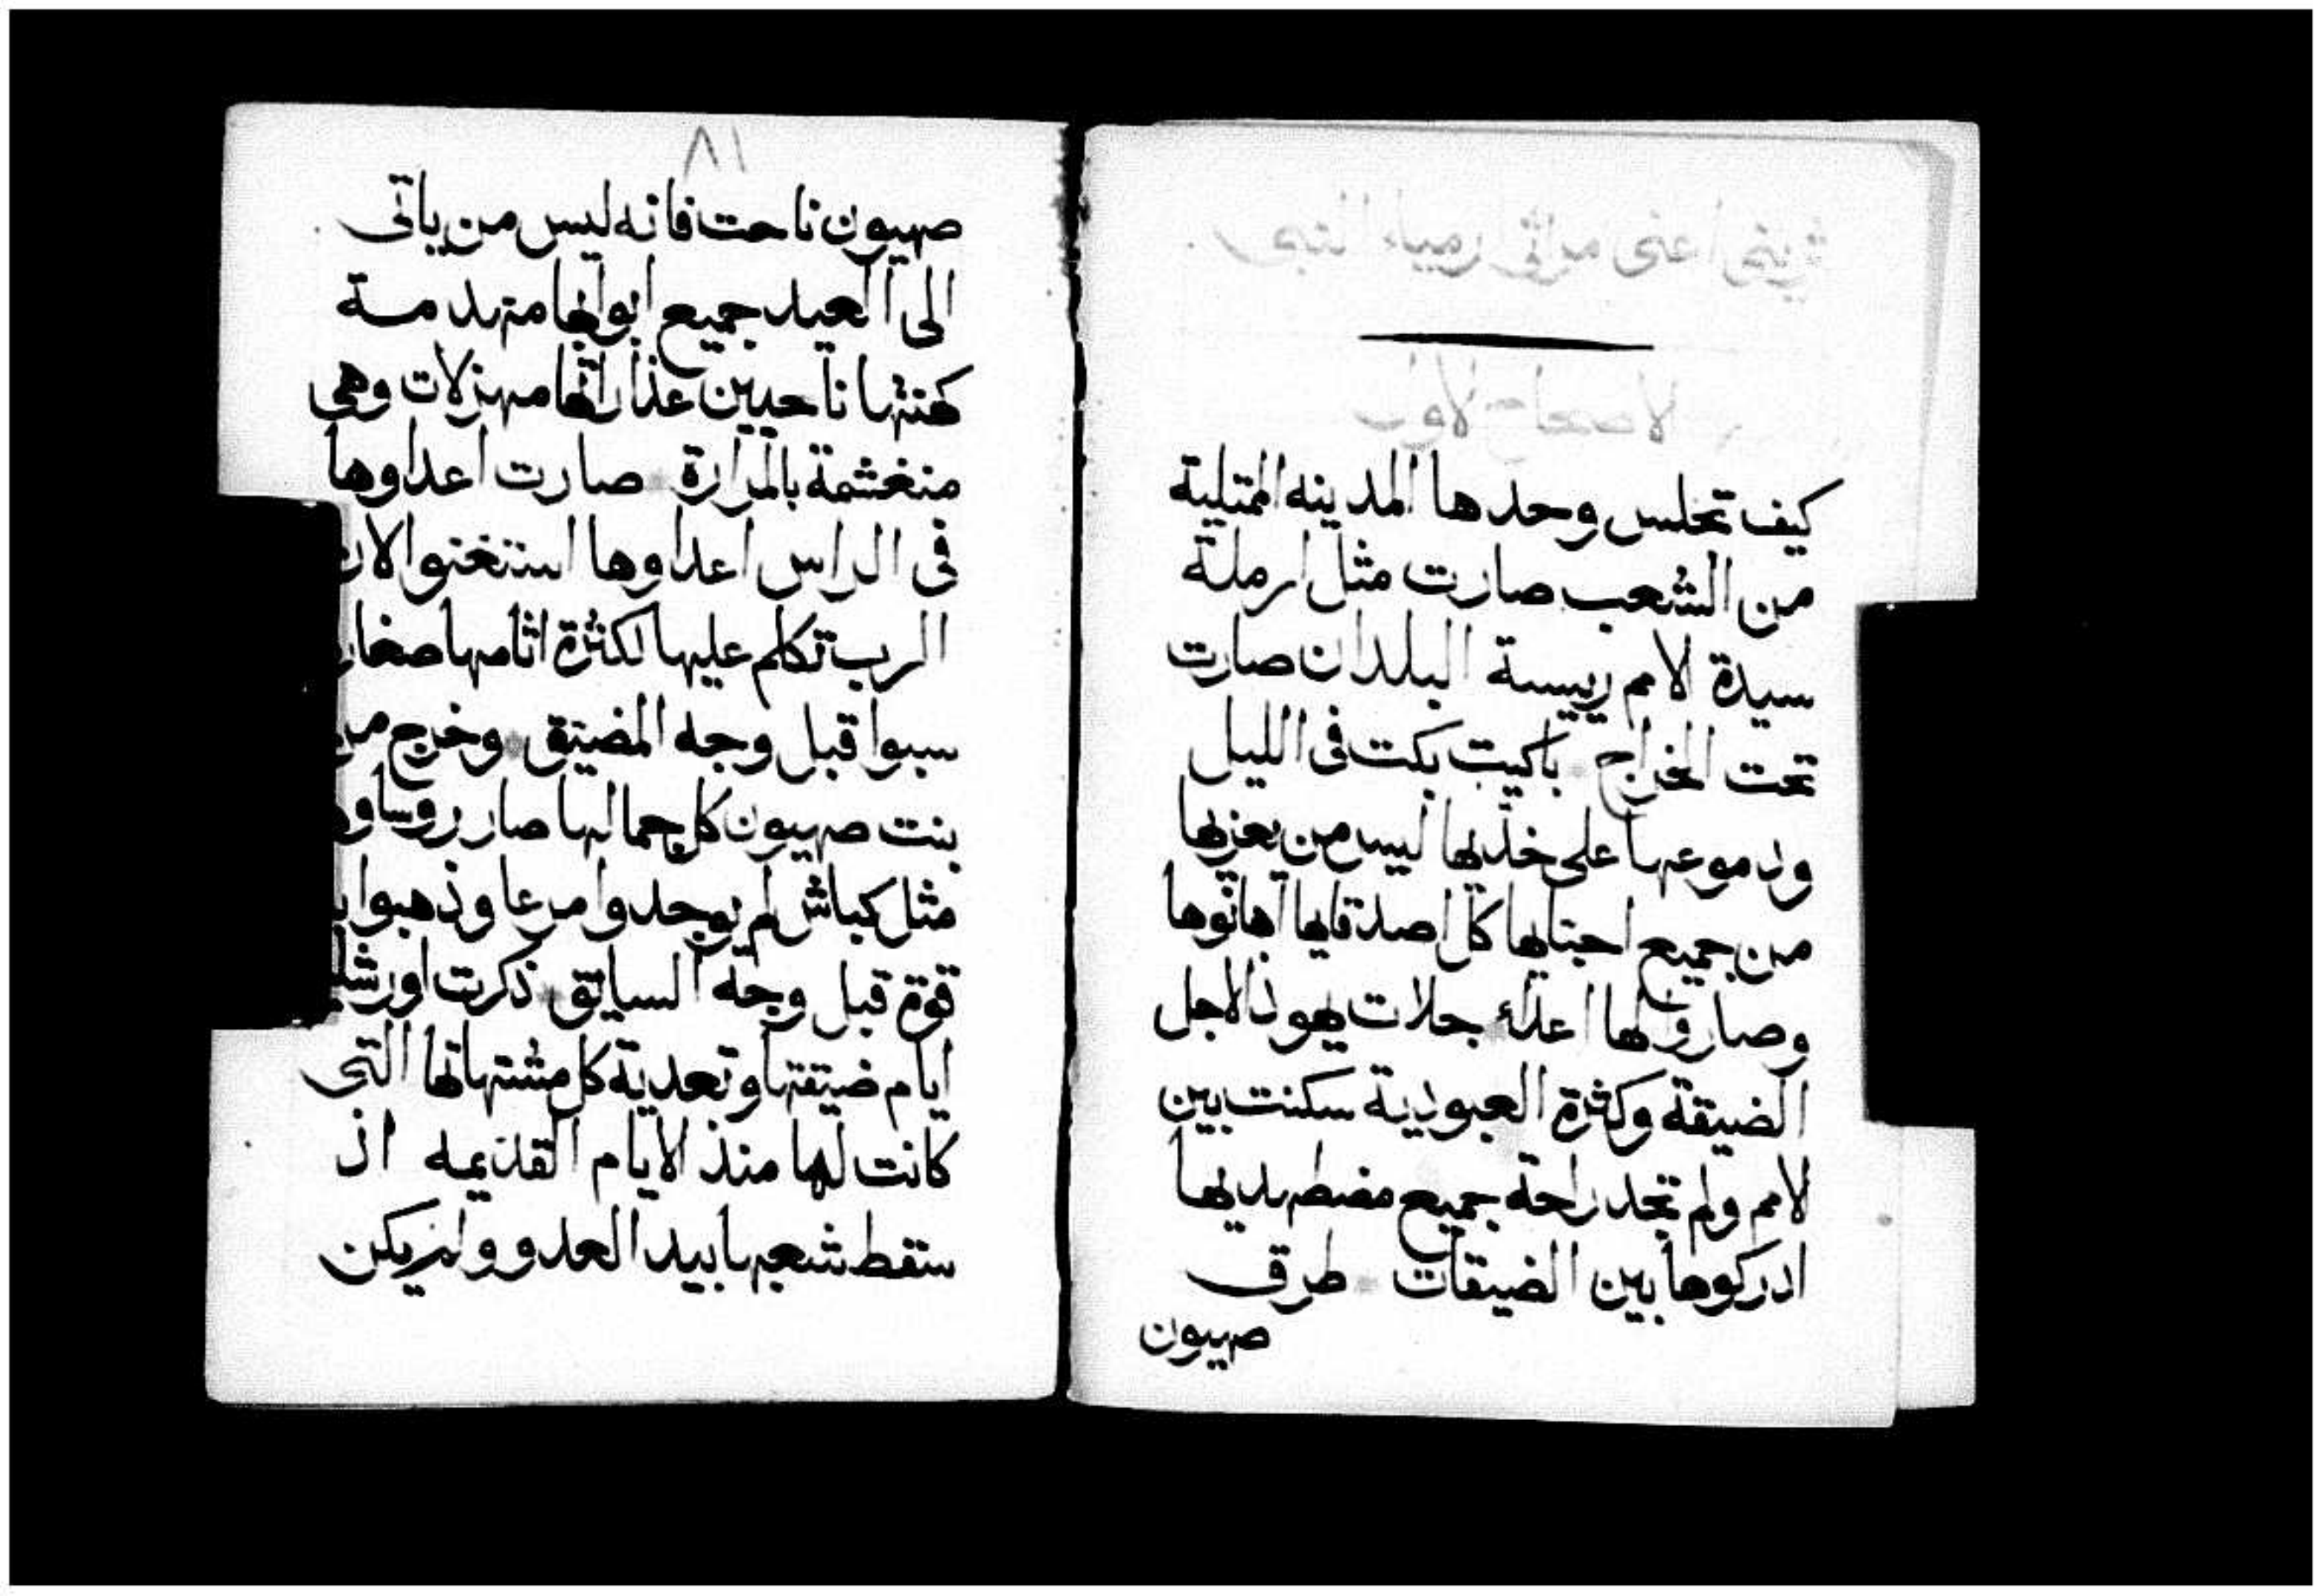 الاصحاح الاول
كيف تجلس وحدها المدينه الممتلية
من الشعب صارت مثل ارملة
سيدة الامم رييسة البلدان صارت
تحت الخراج باكيت بكت فى الليل
ودموعها على خذيها ليس من يعزيها
من جميع احبتايها كل اصدقايها اهانوها
وصاروا لها اعداء جلات يهوذا لاجل
الضيقة وكثرة العبودية سكنت بين
الامم ولم تجد راحة جميع مضطهديها
ادركوها بين الضيقات طرق
صهيون
١٧
صهيون ناحت فانه ليس من ياتى
الى العيد جميع ابوابها متهدمة
كهنتها ناحيين عذاراتها مهزلات وهى
منغشمة بالمرارة صارت اعداوها
فى الراس اعداوها استغنوا لان
الرب تكلم عليها لكثرة اثامها صغار
سبوا قبل وجه المضيق وخرج من
بنت صهيون كل جمالها صار روساوها
مثل كباش لم يوجدوا مرعا وذهبوا
قوة قبل وجه السايق ذكرت اورشليم
ايام ضيقتها وتعدية كل مشتهاتها التى
كانت لها منذ الايام القديمه اذ
سقط شعبها بيد العدو ولم يكن